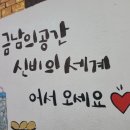 금남의공간
신비의 세계
어서 오세요